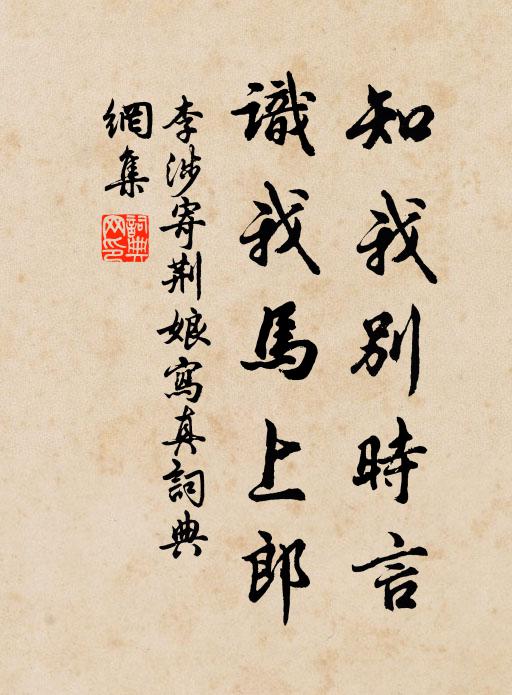 知我別時言
識我馬上郎
李涉寄荆娘寫真詞典
網集
詞典網印